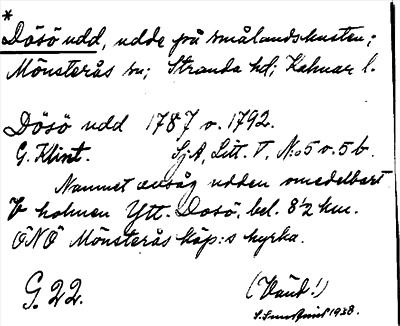 *
Dösö udd, udde på smålandskusten;
Mönsterås sn; Stranda hd; Kalmar l.
Dösö udd 1787 o. 1792.
G. Klint. SjA, Litt. V, N:o 5 o. 5 b.
Namnet avsåg udden omedelbart
V holmen Ytt. Dosö, bel. 8½ km.
ÖNÖ Mönsterås köp:s kyrka.
G. 22. (Vänd!)
1938.